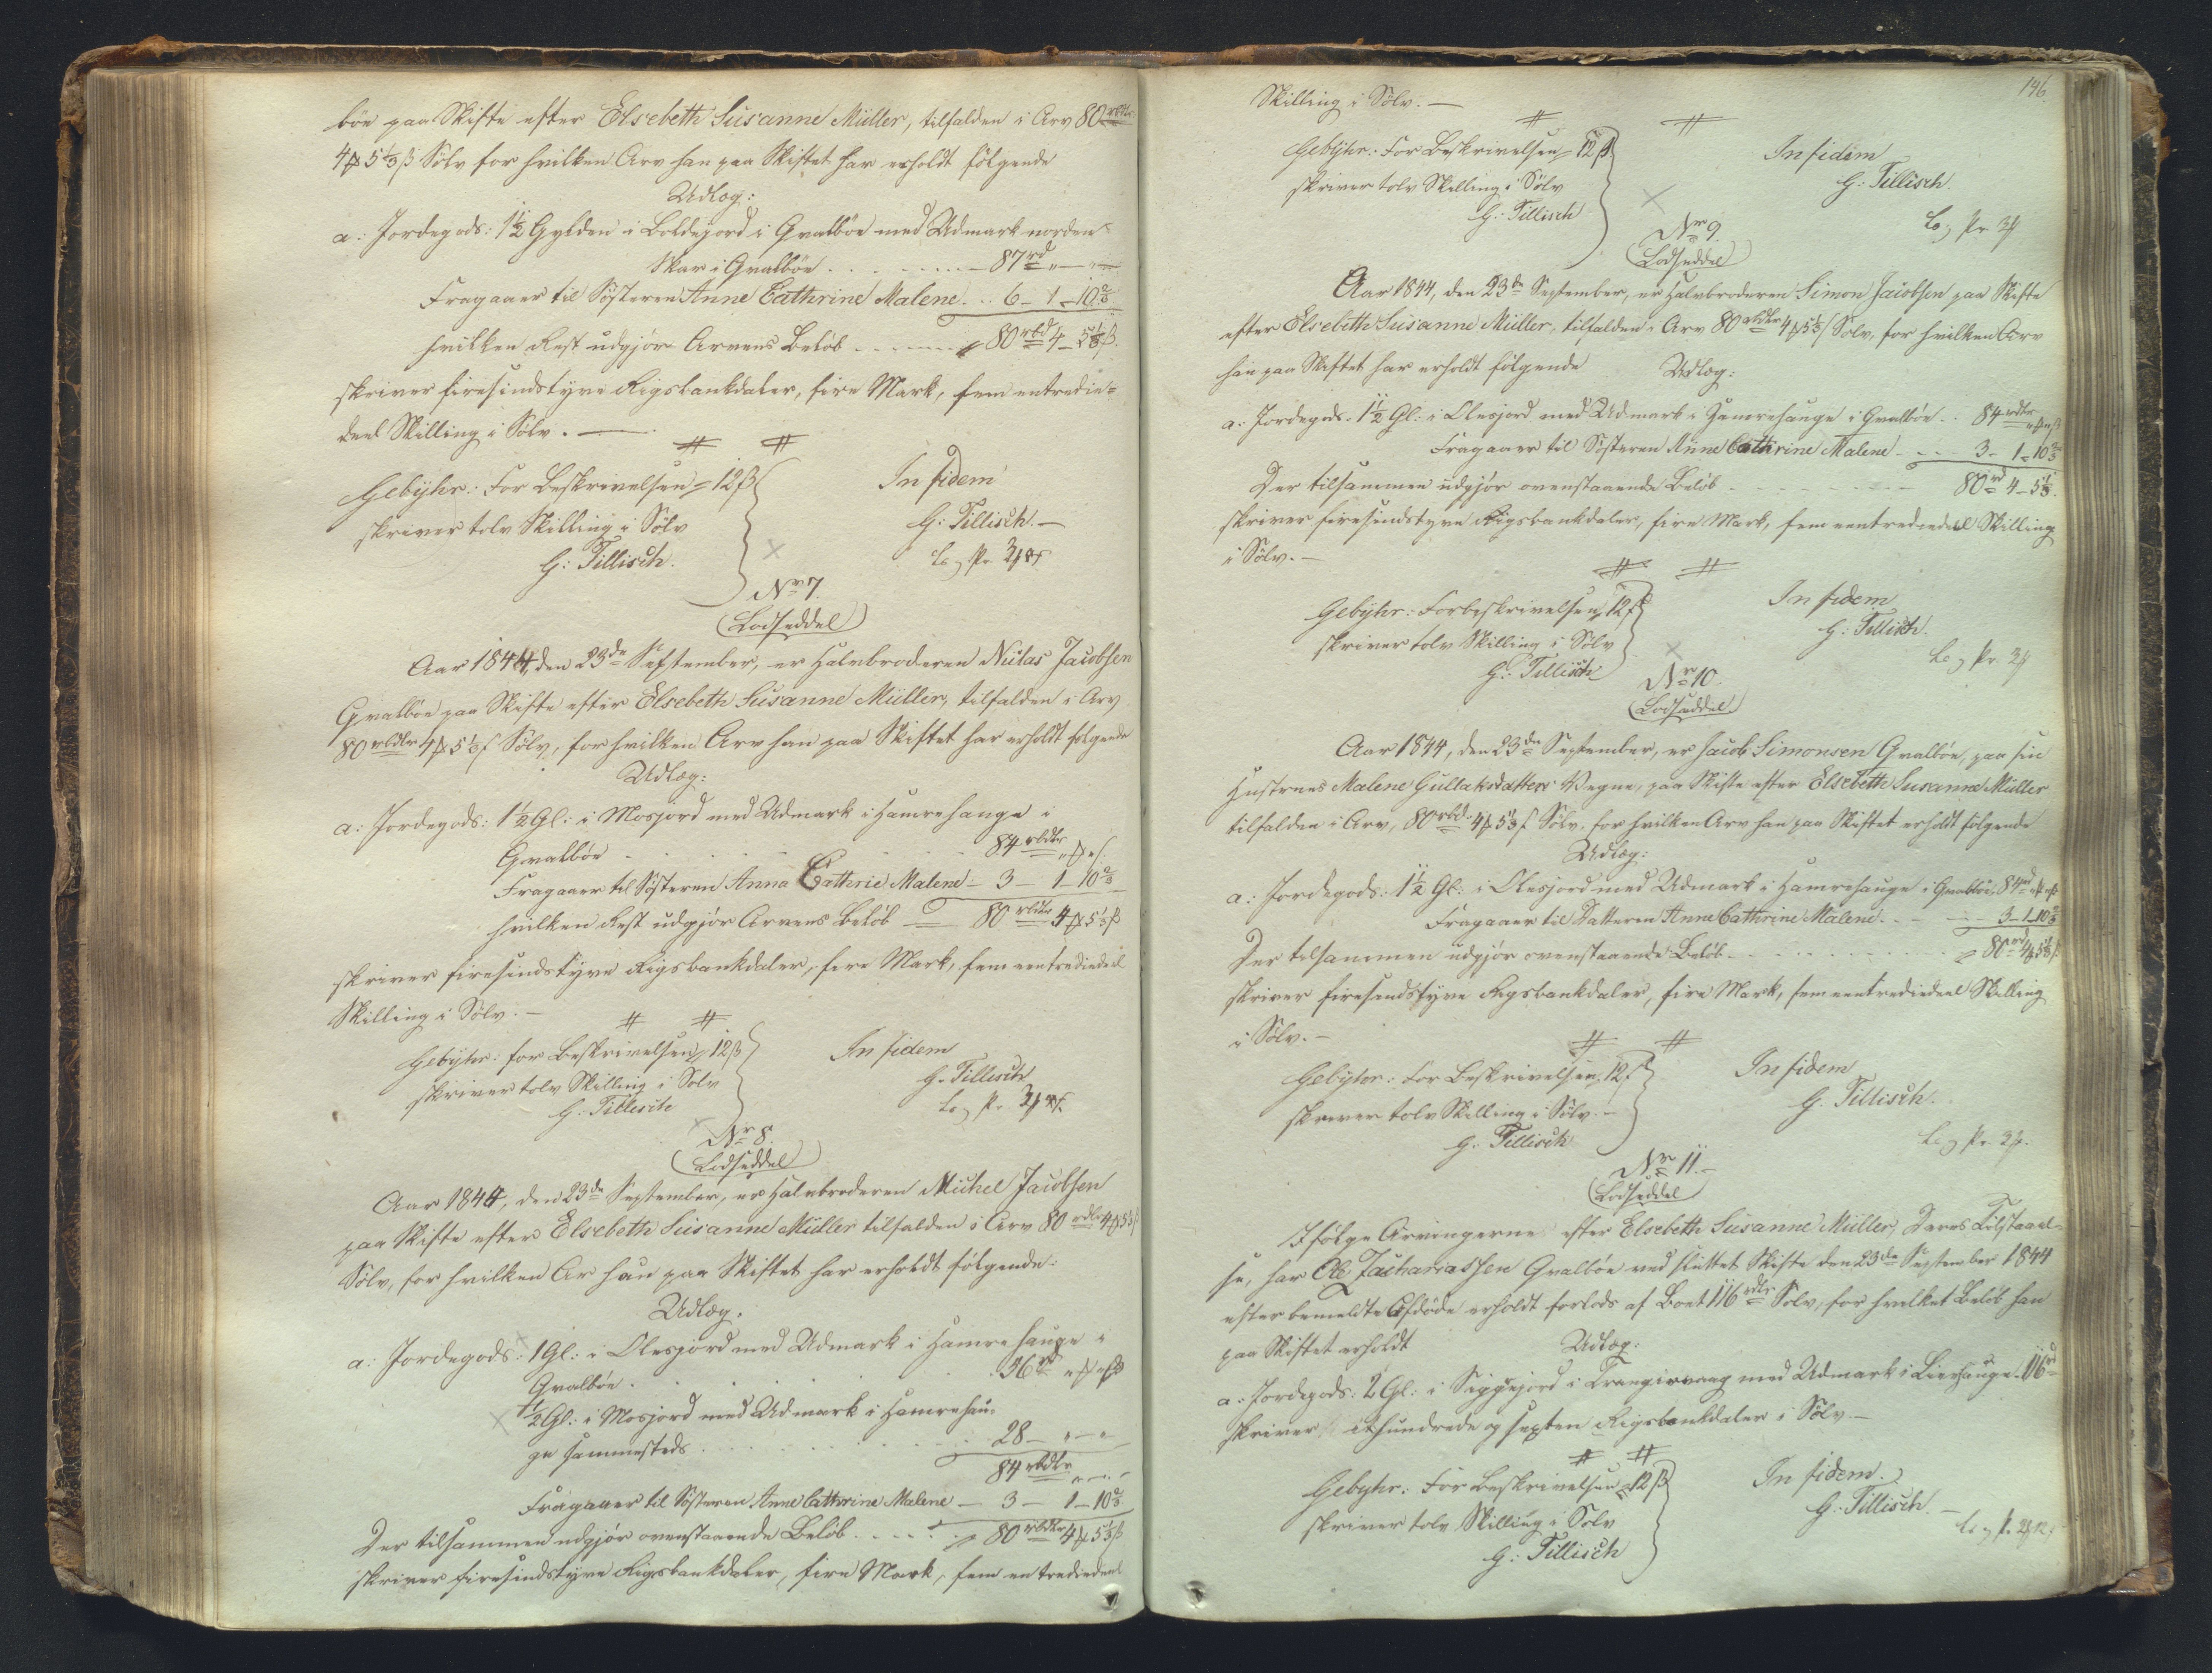 böe paa Skifte efter Elsebeth Susanne Müller, tilfalden i Arv 80 rbdlr
4 ₰ 5⅓ ß Sölv for hvilken Arv han paa Skiftet har erholdt fölgende
Udlæg:
a: Jordegods: 1½ Gylden i Boldejord i Qvalböe med Udmark norden
Skar i Qvalböe . . . . . . 87 rd " — " —
Fragaaer til Systeren Anne Cathrine Malene . . 6 — 1 — 10⅔
hvilken Rest udgjör Arvens Belöb . . . . 80 rbd 4 — 5⅓ ß.
skriver firesindstyve Rigsbankdaler, fire Mark, fem entredie-
deel Skilling i Sölv. —
Gebyhr: For Beskrivelsen = 12 ß In fidem
skriver tolv Skilling i Sölv G: Tillisch. —
G: Tillisch.
No 7.
Lodseddel
Aar 1844, den 23de September, er Halvbroderen Niclas Jacobsen
Qvalböe paa Skifte efter Elsebeth Susanne Müller, tilfalden i Arv
80 rbdlr 4 ₰ 5⅓ ß Sölv, for hvilken Arv han paa Skiftet har erholdt fölgende
Udlæg:
a: Jordegods: 1½ Gl: i Mosjord med Udmark i Hamrehauge i
Qvalböe . . . . . . 84 rbdlr " ₰ " ß
Fragaaer til Systeren Anna Cathrie Malene — 3 — 1 — 10⅔
hvilken Rest udgjör Arvens Belöb — 80 rbdlr 4 ₰ 5⅓ ß
skriver firesindstyve Rigsbankdaler, fire Mark, fem eentrediedeel
Skilling i Sölv. —
Gebyhr: for Beskrivelsen = 12 ß In fidem
skriver tolv Skilling i Sölv G. Tillisch
G: Tillisch
No 8.
Lodseddel
Aar 1844, den 23de September, er Halvbroderen Michel Jacobsen
paa Skifte efter Elsebeth Susanne Müller tilfalden i Arv 80 rdlr 4 ₰ 5⅓ ß
Sölv, for hvilken Ar han paa Skiftet har erholdt fölgende:
Udlæg.
a: Jordegods: 1 Gl: i Olesjord med Udmark i Hamrehauge i
Qvalböe . . . . . . 56 rd " ₰ " ß
½ Gl: i Mosjord med Udmark i Hamrehau-
ge sammesteds . . . . . . 28 — " — "
84 rbdlr " — "
Fragaaer til Systeren Anne Cathrine Malene — 3 — 1 — 10⅔
Der tilsammen udgjör ovenstaaende Belöb . . . . 80 rbdlr 4 ₰ 5⅓ ß
skriver firesindstyve Rigsbankdaler, fire Mark, fem en trediedeel
146.
Skilling i Sölv. —
Gebyhr: For Beskrivelsen = 12 ß In fidem
skriver tolv Skilling i Sölv G: Tillisch.
G: Tillisch
No 9.
Lodseddel
Aar 1844, den 23de September, er Halvbroderen Simon Jacobsen paa Skifte
efter Elsebeth Susanne Müller, tilfalden i Arv 80 rbdlr 4 ₰ 5⅓ ß Sölv, for hvilken Arv
han paa Skiftet har erholdt fölgende Udlæg:
a: Jordegods: 1½ Gl: i Olesjord med Udmark i Hamrehauge i Qvalböe . . 84 rdlr " ₰ " ß
Fragaaer til Systeren Anne Cathrine Malene . . . . 3 — 1 — 10⅔
Der tilsammen udgjör ovenstaaende Belöb . . . . 80 rd 4 — 5⅓.
skriver firesindstyve Rigsbankdaler, fire Mark, fem eentrediedeel Skilling
i Sölv. —
Gebyhr: For beskrivelsen = 12 ß In fidem
skriver tolv Skilling i Sölv G: Tillisch.
G: Tillisch
No 10.
Lodseddel
Aar 1844, den 23de September, er Jacob Simonsen Qvalböe, paa sin
Hustrues Malene Gullaksdatters Vegne, paa Skifte efter Elsebeth Susanna Müller
tilfalden i Arv, 80 rbd. 4 ₰ 5⅓ ß Sölv. for hvilken Arv han paa Skiftet erholdt fölgende
Udlæg:
a: Jordegods: 1½ Gl: i Olesjord med Udmark i Hamrehauge i Qvalböe. 84 rd " ₰ " ß
Fragaaer til Datteren Anne Cathrine Malene . . . . 3 — 1 — 10⅔
Der tilsammen udgjör ovenstaaende Belöb . . . . 80 rd 4 ₰ 5⅓ ß.
skriver firesindstyve Rigsbankdaler, fire Mark, fem eentrediedeel Skilling
i Sölv. —
Gebyhr: For Beskrivelsen, 12 ß In fidem
skriver tolv Skilling i Sölv. — G. Tillisch.
G. Tillisch
No 11. —
Lodseddel
Ifölge Arvingerne efter Elsebeth Susanne Müller, Deres Tilstaael-
se, har Ole Zachariassen Qvalböe ved sluttet Skifte den 23de September 1844
efter bemeldte Afdöde erholdt forlods af Boet 116 rdlr Sölv, for hvilket Belöb han
paa Skiftet erholdt Udlæg:
a: Jordegods: 2 Gl: i Siggejord i Trangisvaag med Udmark i Lierhauge. 116 rd
skriver ethundrede og sexten Rigsbankdaler i Sölv. —
Gebyhr: For Beskrivelsen = 12 ß In fidem.
skriver tolv Skilling i Sölv G: Tillisch. —
G: Tillisch